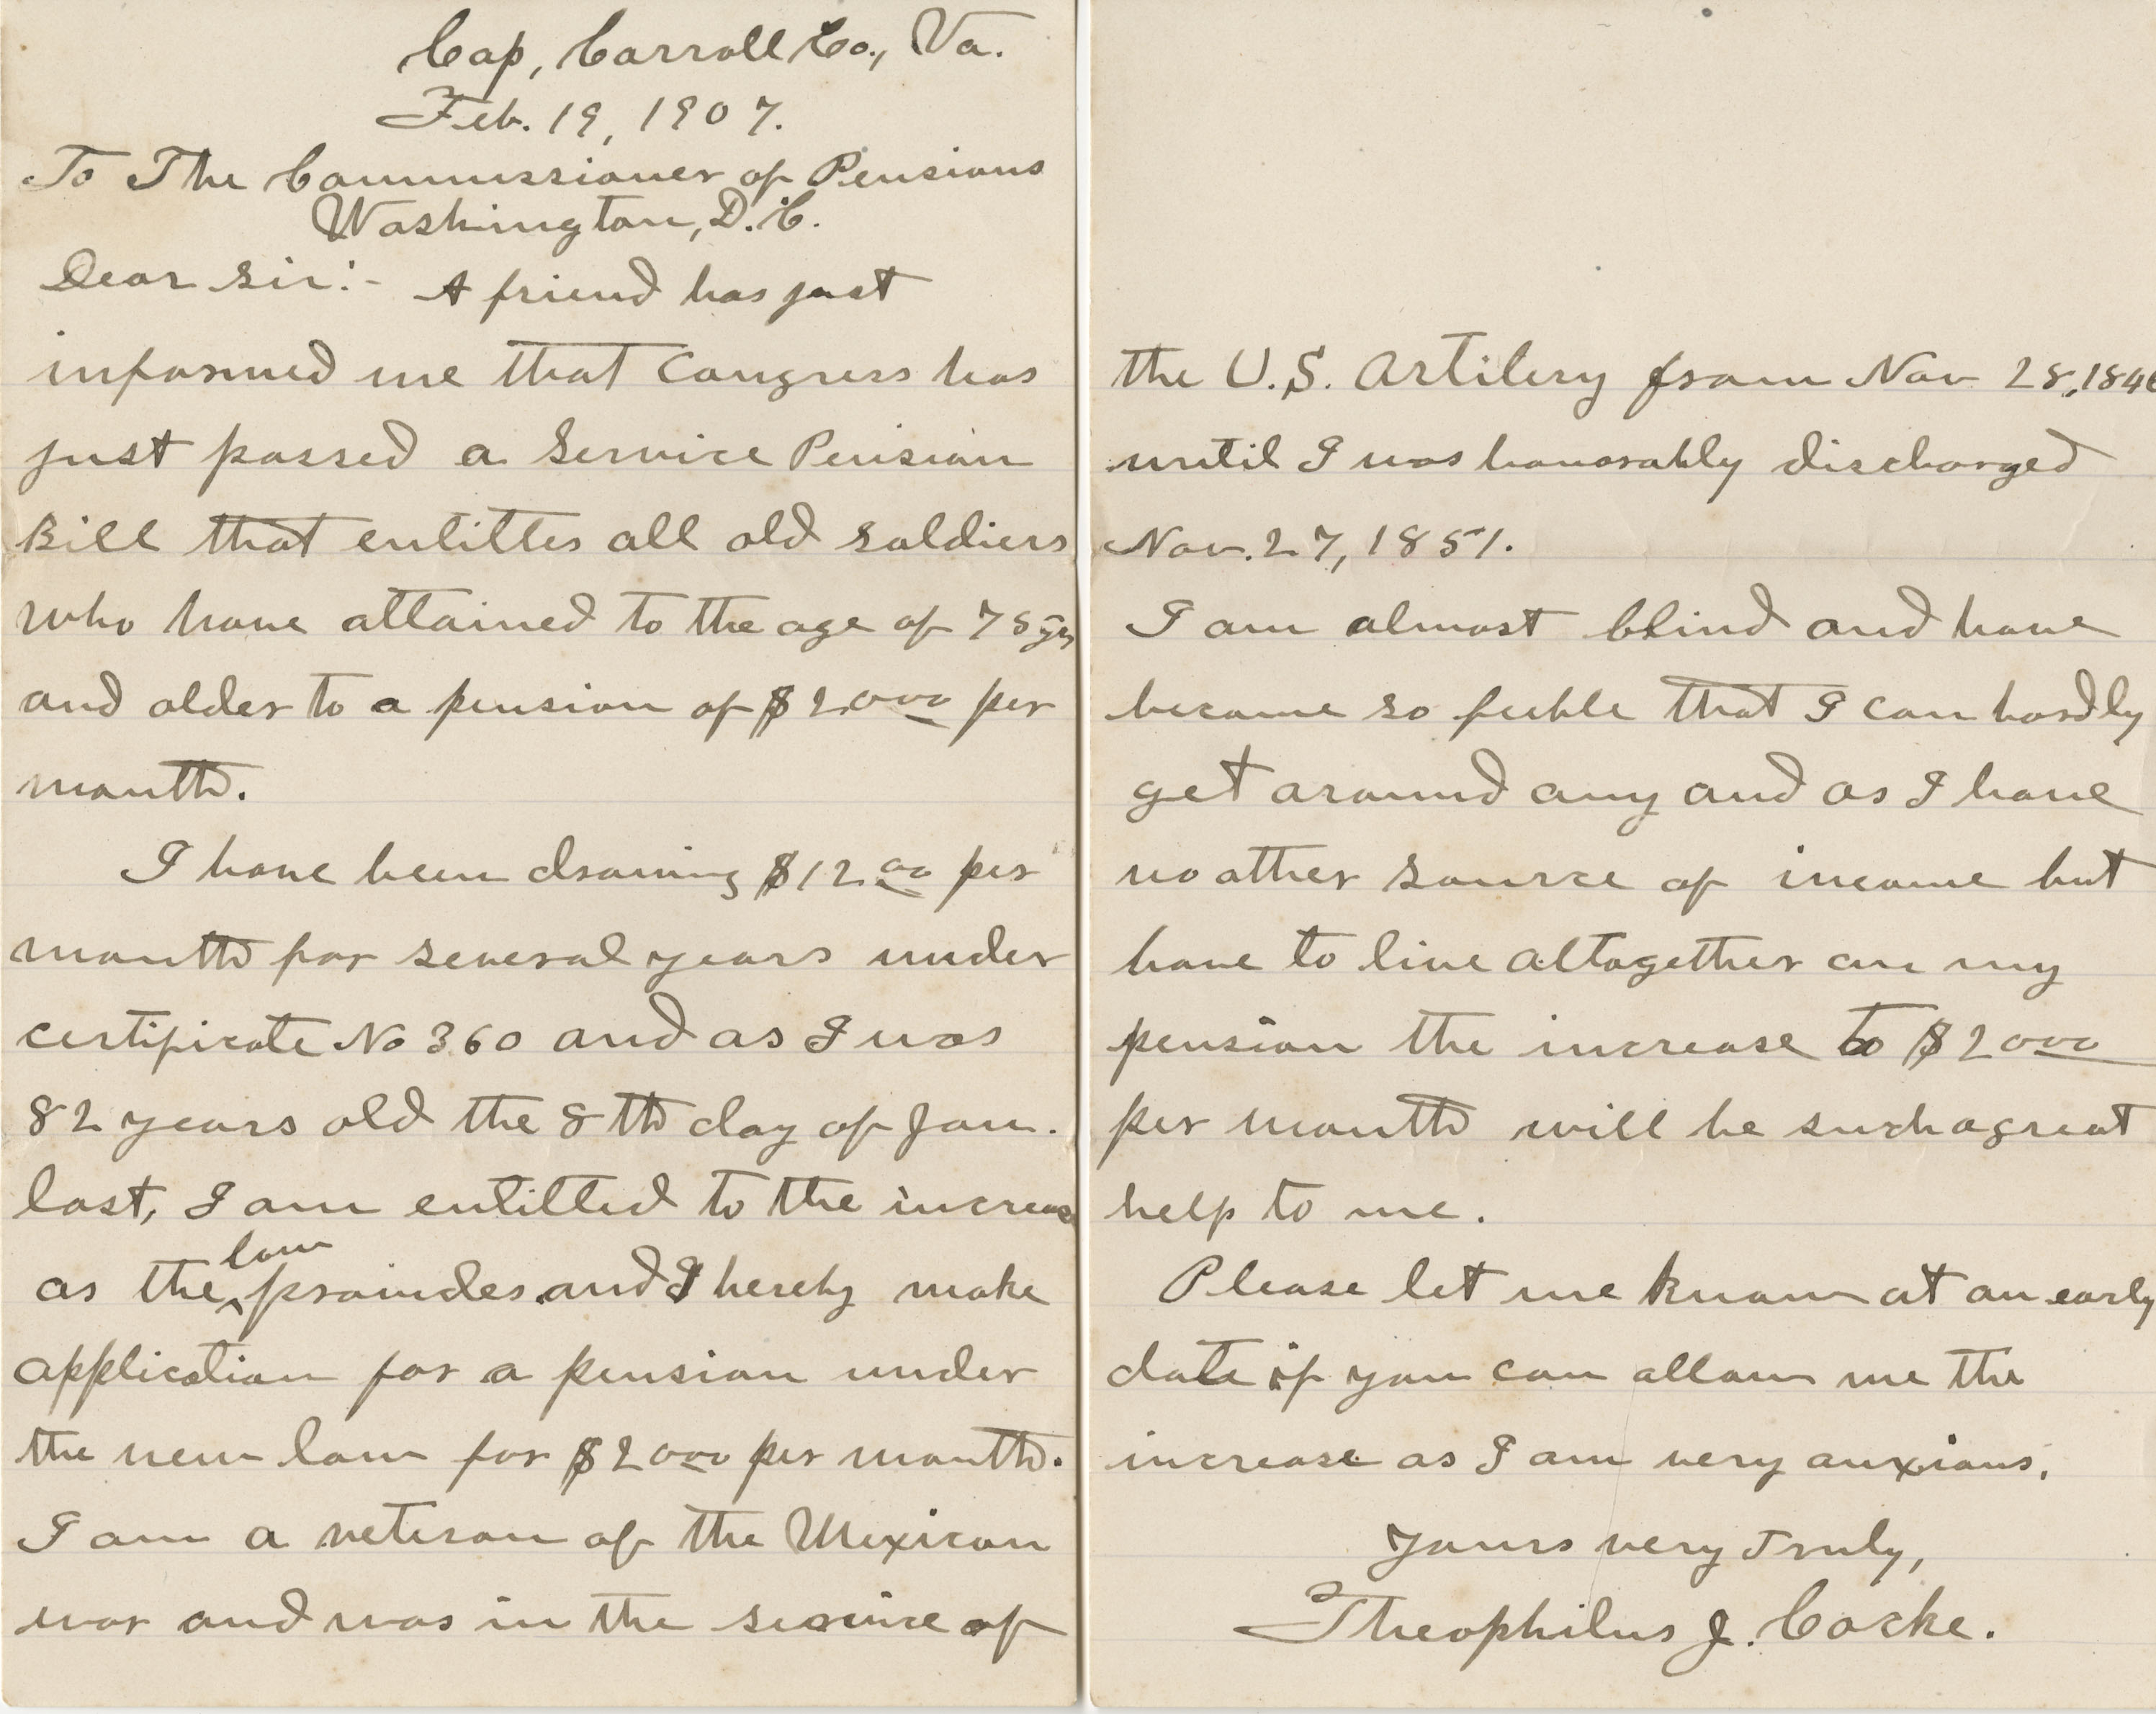 Cap, Carroll Co., Va.
Feb. 19, 1907.
To The Commissioner of Pensions
Washington, D.C.
Dear Sir:- A friend has just
informed me that Congress has
just passed a Service Pension
Bill that entitles all old soldiers
who have attained to the age of 75 yrs
and older to a pension of $20.00 per
month.
I have been drawing $12.00 per
month for several years under
certificate No 360 and as I was
82 years old the 8th day of Jan.
last, I am entitled to the increase
as the law provides and I hereby make
application for a pension under
the new law for $20.00 per month.
I am a veteran of the Mexican
war and was in the service of
the U.S. Artilery from Nov 28, 1846
until I was honorably discharged
Nov. 27, 1851.
I am almost blind and have
become so feeble that I can hardly
get around any and as I have
no other source of income but
have to live altogether on my
pension the increase to $20.00
per month will be such a great
help to me.
Please let me know at an early
date if you can allow me the
increase as I am very anxious.
Yours very Truly,
Theophilus J. Cocke.